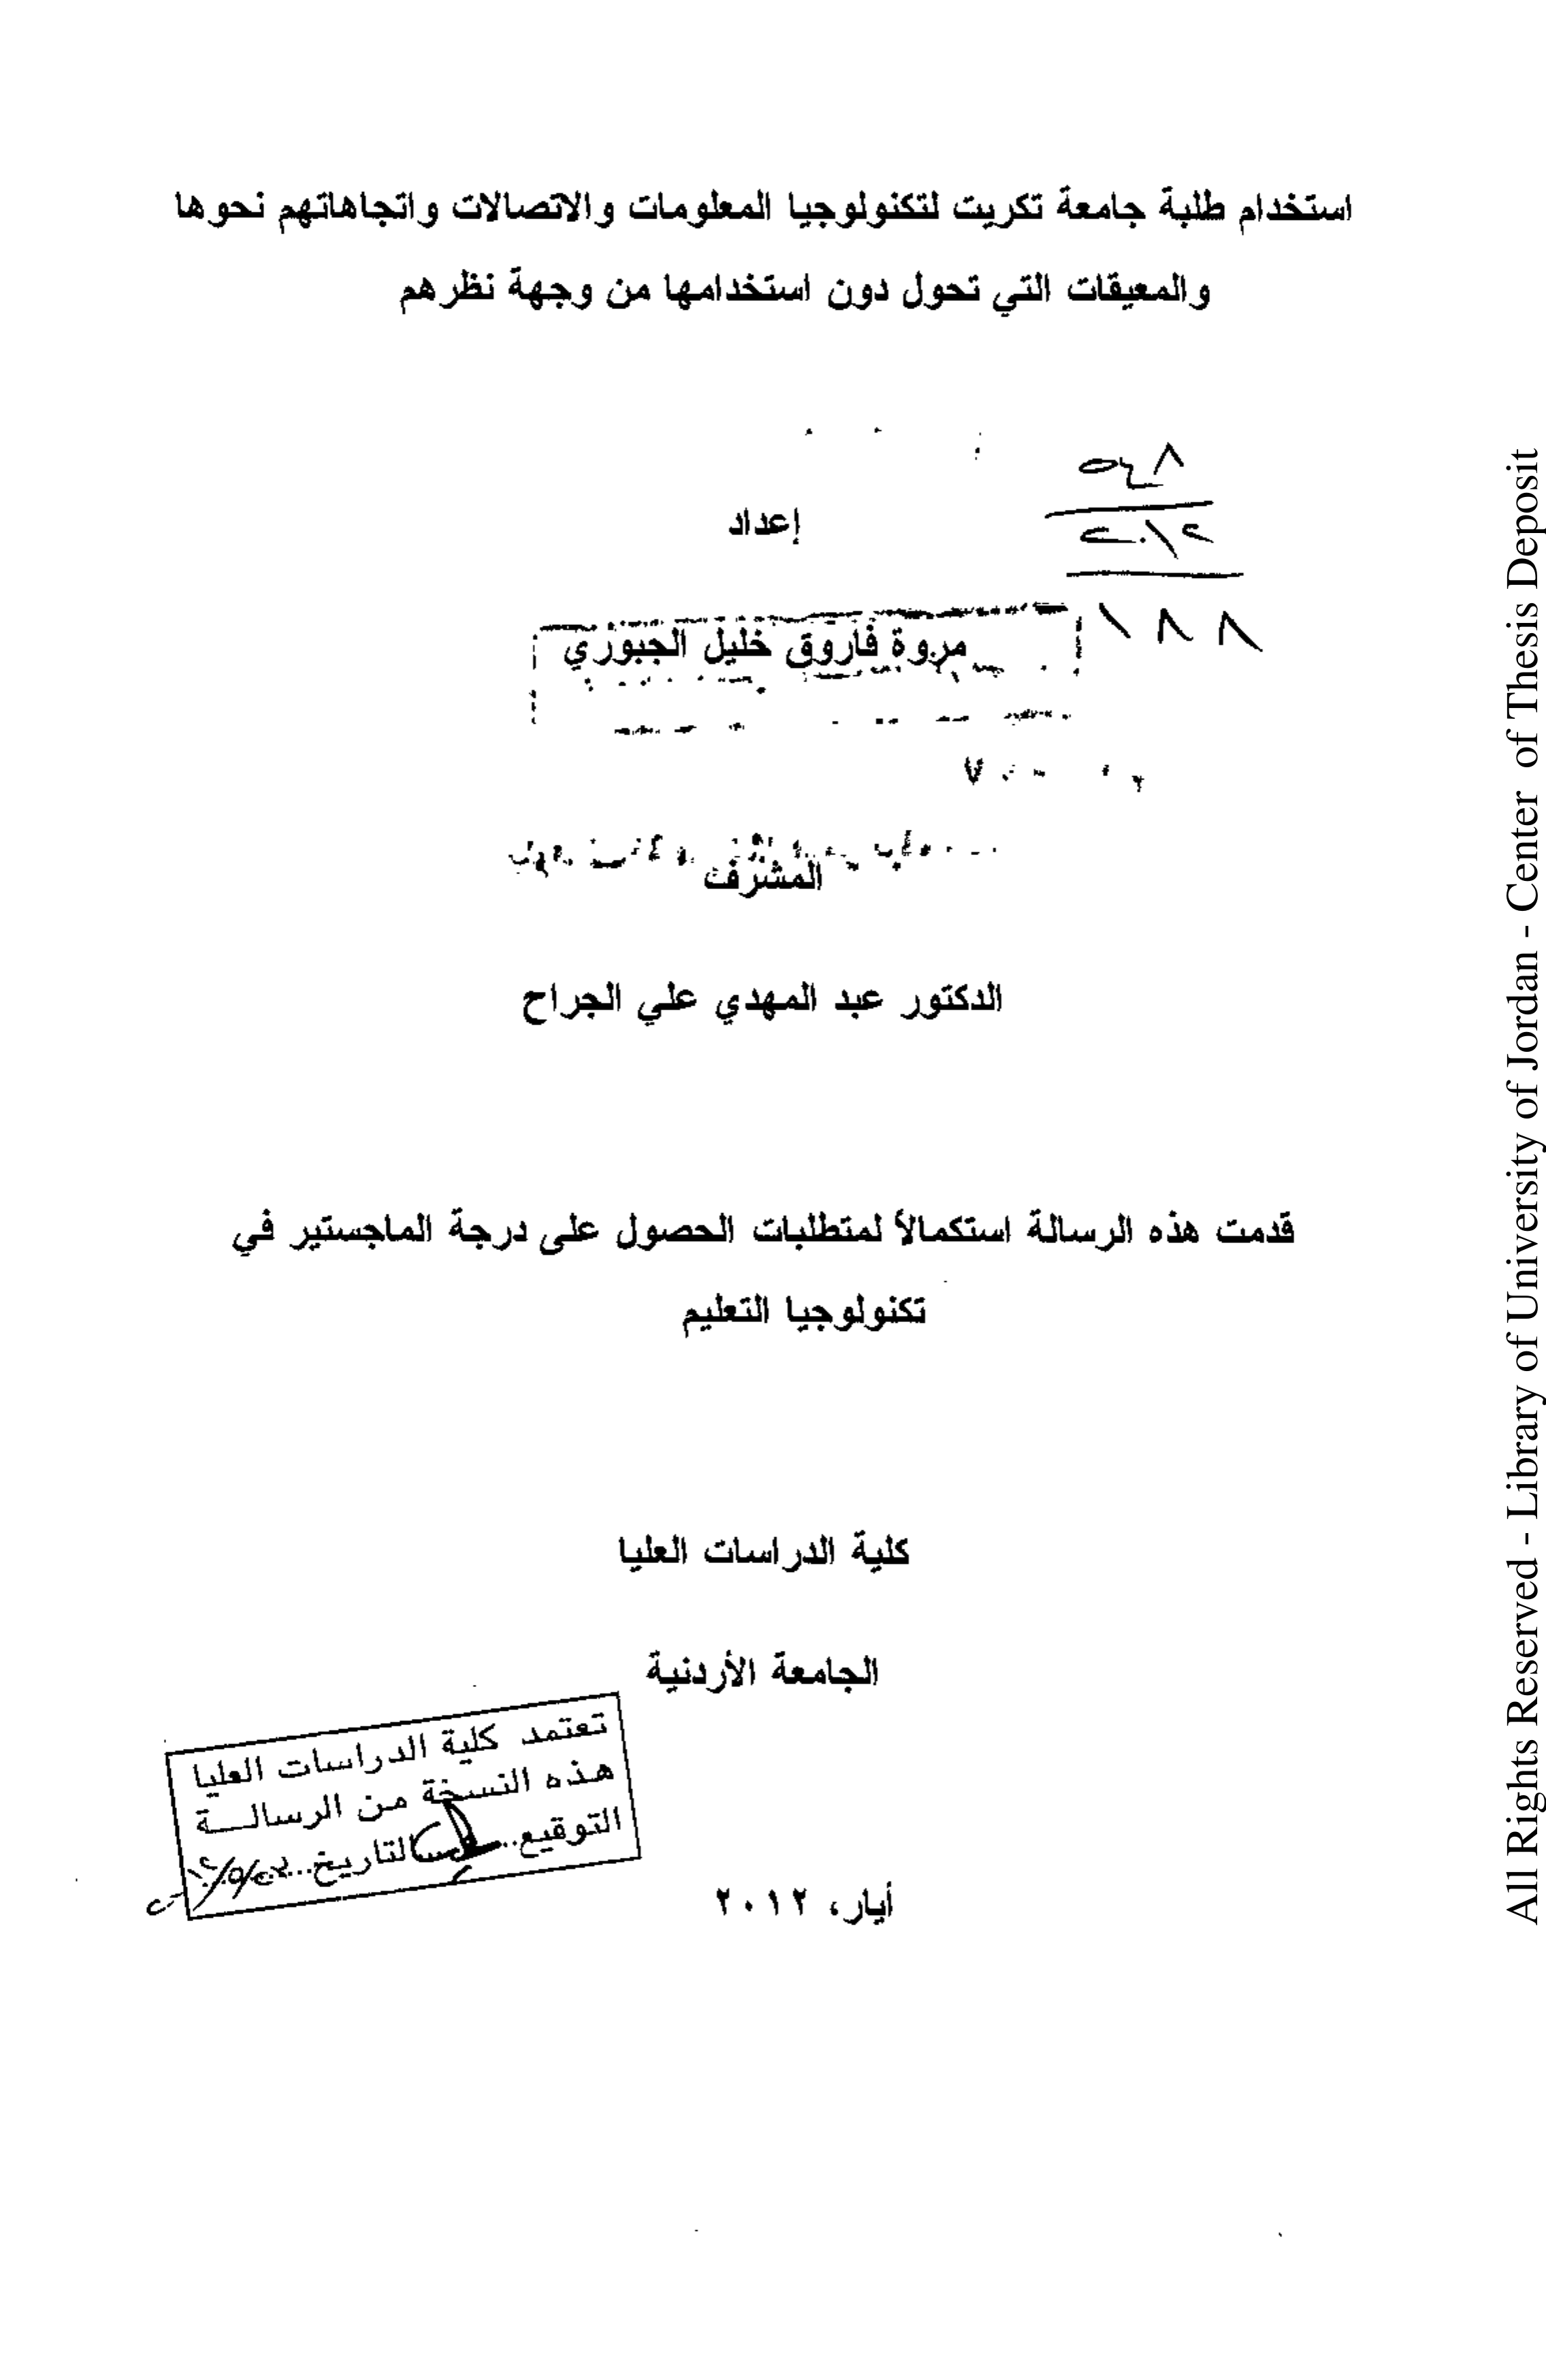 استخدام طلبة جامعة تكريت لتكنولوجيا المعلومات والاتصالات واتجاهاتهم نحوها
والمعيقات التي تحول دون استخدامها من وجهة نظرهم
٥٤٨
٢٠١٢
١٨٨
إعداد
مروة فاروق خليل الجبوري
المشرف
الدكتور عبد المهدي علي الجراح
قدمت هذه الرسالة استكمالاً لمتطلبات الحصول على درجة الماجستير في
تكنولوجيا التعليم
كلية الدراسات العليا
الجامعة الأردنية
تعتمد كلية الدراسات العليا
هذه النسخة من الرسالــة
التوقيع... التاريخ...
أيار، ٢٠١٢
All Rights Reserved - Library of University of Jordan - Center of Thesis Deposit